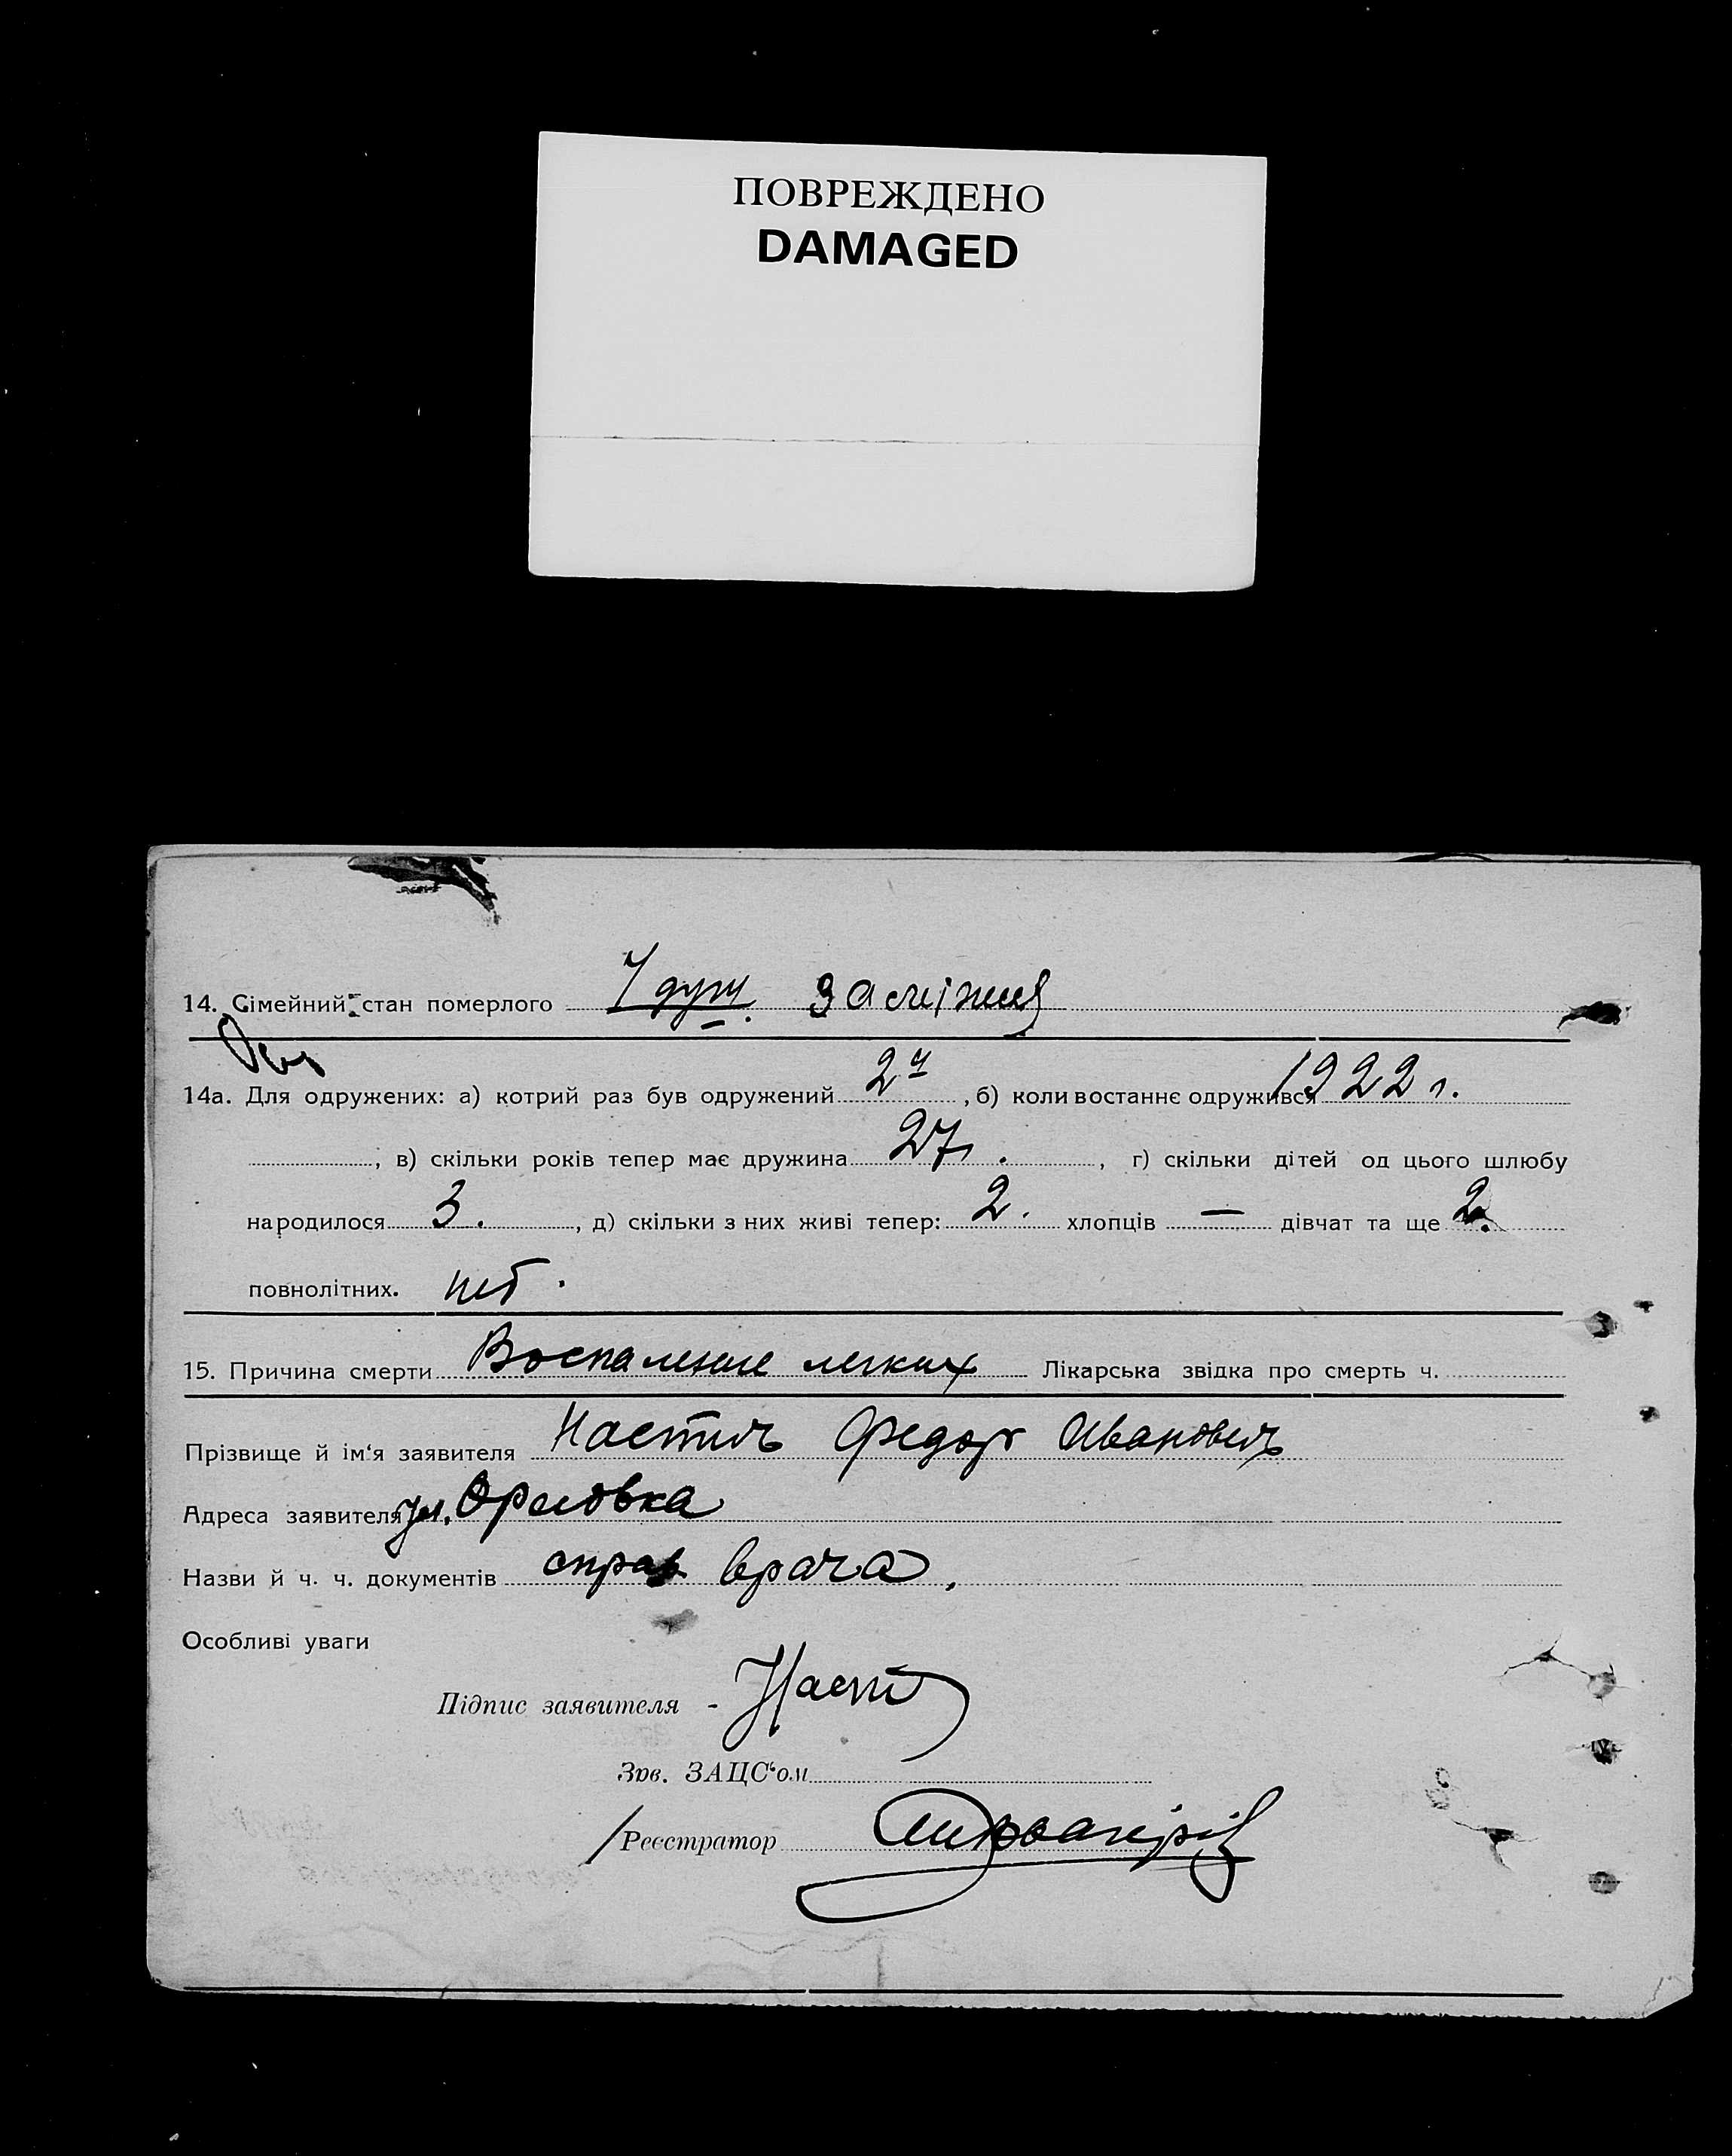 ПОВРЕЖДЕНО
DAMAGED
14. Сімейний стан померлого заміжня
14а. Для одружених: а) котрий раз був одружений 2й, б) коли востаннє одружився 1922 г.
; в) скільки років тепер має дружина 27 ., г) скільки дітей од цього шлюбу
народилося 3., д) скільки з них живі тепер: 2. хлопців — дівчат та ще 2.
повнолітних. нет.
15. Причина смерти Воспаление легких Лікарська звідка про смерть ч.
Прізвище й ім'я заявителя Федор Иванович
Адреса заявителя Орловка
Назви й ч. ч. документів справ врача.
Особливі уваги
Підпис заявителя -
Зав. ЗАЦС'ом
/Реєстратор